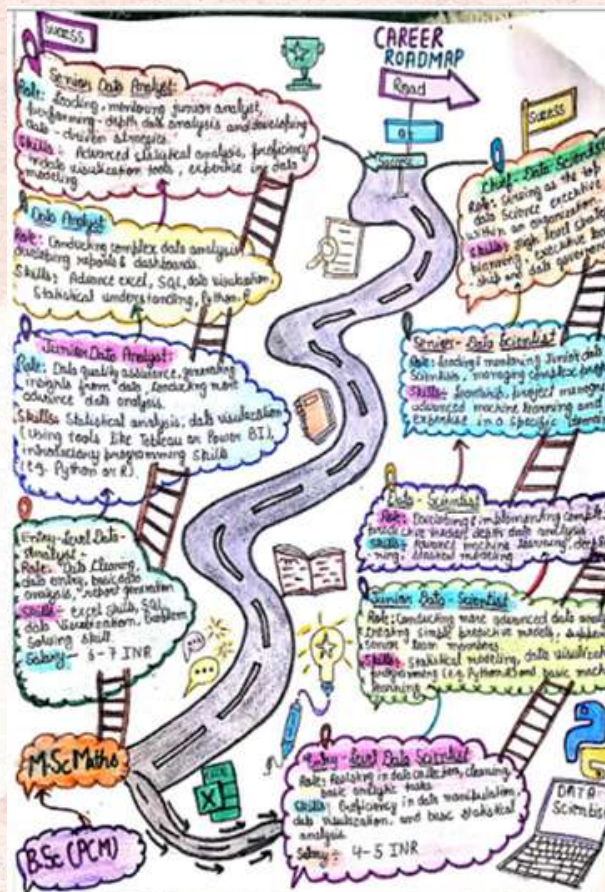 CAREER
ROADMAP
Road
OF
Success
Sucess
Senior Data Analyst:
Role: Leading, mentoring junior analyst,
performing -depth data analysis and developing
data - driven strategies.
Skills: Advanced statistical analysis, proficiency
in data visualization tools, expertise in data
modeling
Data Analyst
Role: Conducting complex data analysis,
developing reports & dashboards.
Skills: Advance excel, SQL, data visualization,
Statistical understanding, Python, R
Junior Data Analyst:
Role: Data quality assurance, generating
insights from data, conducting more
advance data analysis.
Skills: Statistical analysis, data visualization
(Using tools like Tableau or Power BI),
introductory programming skills
(e.g. Python or R).
Entry-Level Data-
Analyst -
Role: Data cleaning,
data entry, basic data
analysis, report generation
Skills: excel skills, SQL,
data visualization, problem
solving skill.
Salary:- 6-7 INR
M.Sc Maths
B.Sc (PCM)
Sucess
Chief-Data Scientist
Role: Serving as the top
data science executive
within an organization.
Skills: High level strategic
planning, executive leader
-ship and data governance
Senior-Data Scientist
Role: Leading & mentoring Junior data
Scientists, managing complex
Skills: leadership, project
advanced machine learning and
expertise in a specific
Data-Scientist
Role: Developing & implementing
predictive model, depth data analysis
Skills: Advance machine learning,
Junior Data-Scientist
Role: Conducting more advanced data
creating simple predictive models,
senior team members
Skills: Statistical modeling, data
programming (e.g. Python, R) and basic
learning
Entry-Level Data Scientist
Role: Assisting in data collection, cleaning,
basic analytic tasks
Skills: Proficiency in data manipulation,
data visualization, and basic statistical
analysis
Salary:- 4-5 INR
X
DATA
Scientist